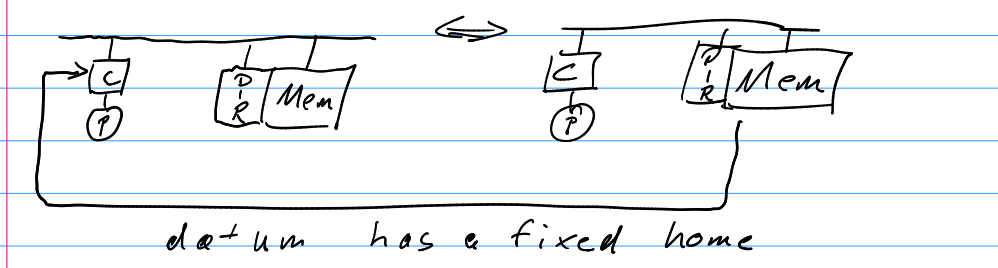 C DIR Mem C DIR Mem
P P
datum has a fixed home